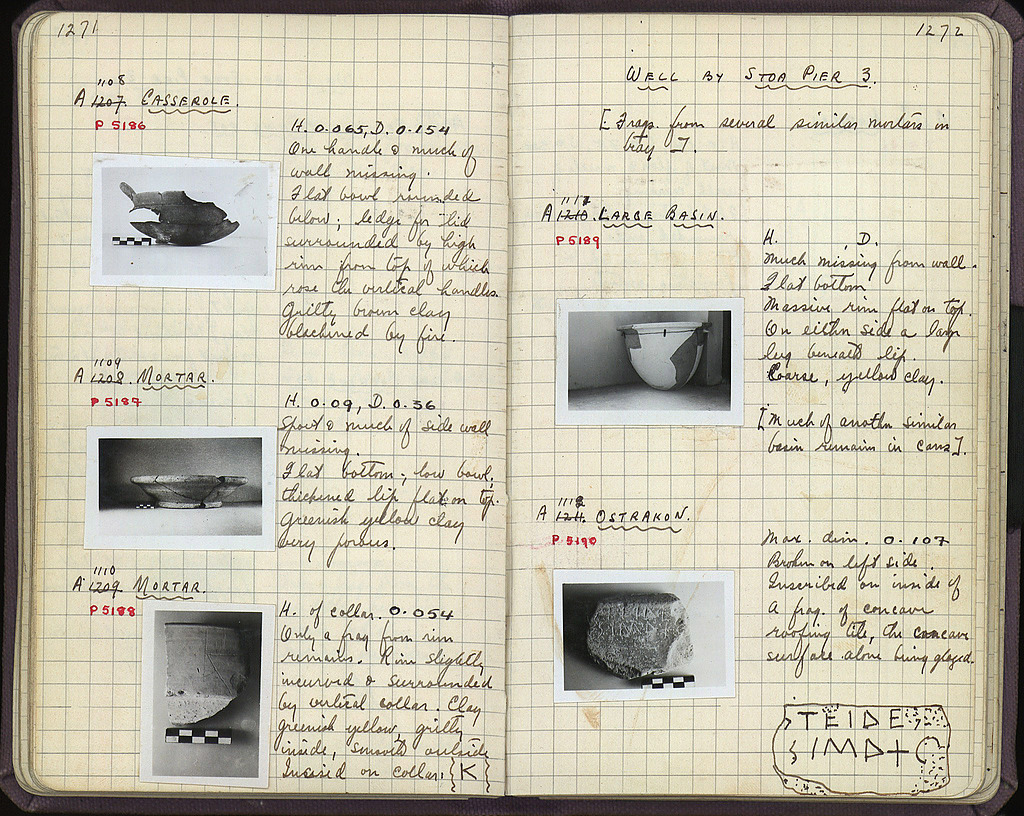 1271
1108
A 1207 CASSEROLE.
P 5186
H. 0.065, D. 0.154
One handle & much of
wall missing.
Flat bowl rounded
below; ledge for lid
surrounded by high
rim from top of which
rose the vertical handles.
Gritty brown clay
blackened by fire.
1109
A 1208. MORTAR.
P 5187
H. 0.09, D. 0.36
Spout & much of side wall
missing.
Flat bottom; low bowl;
thickened lip flat on top.
Greenish yellow clay
very porous.
1110
A 1209 MORTAR.
P 5188
H. of collar. 0.054
Only a frag from rim
remains. Rim slightly
incurved & surrounded
by vertical collar. Clay
greenish yellow, gritty
inside, smooth outside
Incised on collar. {K}
1272
WELL BY STOA PIER 3.
[Frags from several similar mortars in
tray].
A 1210. LARGE BASIN.
P 5189
H. , D.
Much missing from wall.
Flat bottom
Massive rim flat on top.
On either side a large
lug beneath lip.
Coarse, yellow clay.
[Much of another similar
basin remains in cans].
A 1211. OSTRAKON.
P 5190
Max. dim. 0.107
Broken on left side.
Inscribed on inside of
a frag. of concave
roofing tile, the concave
surface alone being glazed.
TEIDE
IMD+C